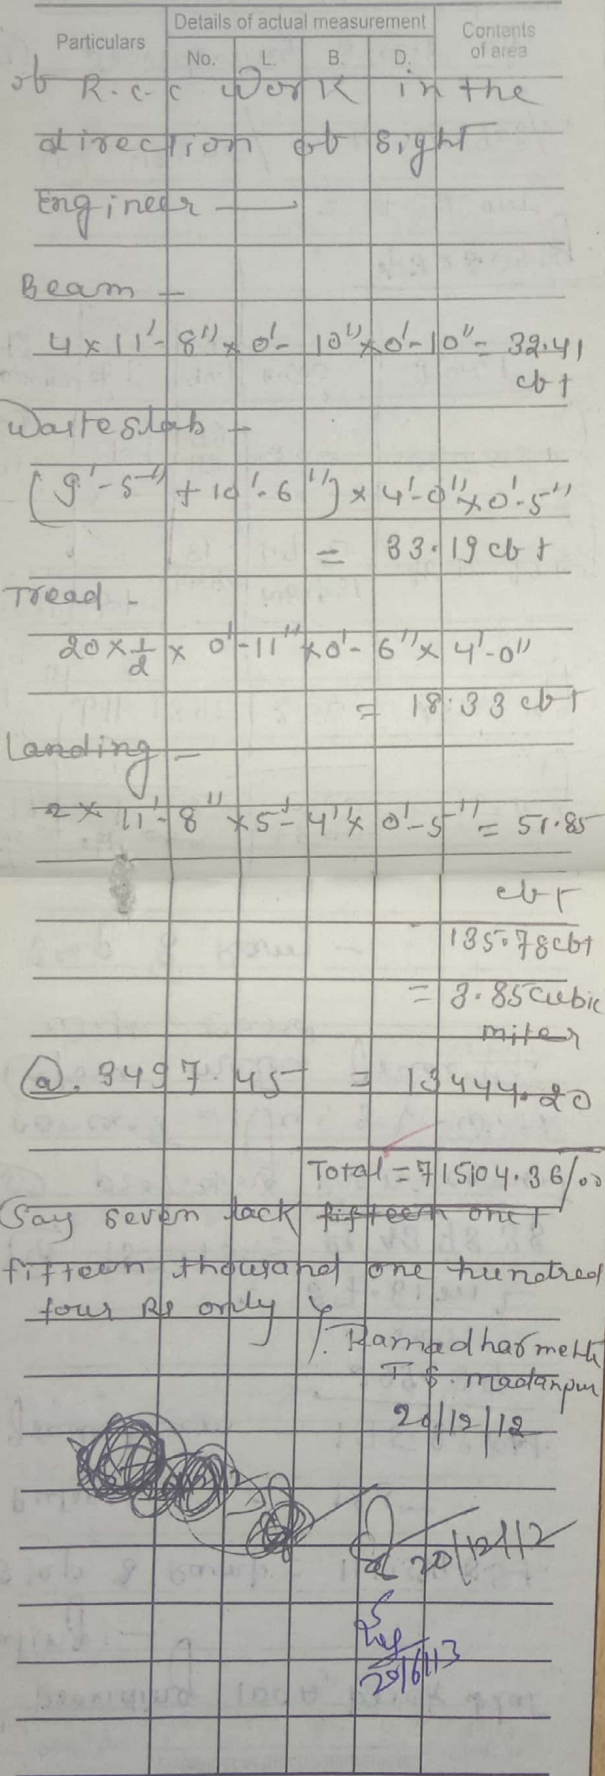 Particulars Details of actual measurement Contents of area
No. L. B. D.
ob R.c.c work in the
direction ob sight
Engineer —
Beam -
4 x 11'- 8" x 0'- 10" x 0'-10" = 32.41
cbt
Waiteslab -
(9'-5" + 10'-6") x 4'-0" x 0'-5"
= 33.19 cbt
Tread -
20 x 1/2 x 0'-11" x 0'-6" x 4'-0"
= 18.33 cbt
Landing -
2 x 11'-8" x 5'-4" x 0'-5" = 51.85
cbt
135.78cbt
= 3.85cubic
miter
@. 3497.45 = 13444.20
Total = 715104.36/00
Say seven lack fifteen one
fifteen thousand one hundred
four Rs only
Ramadhar mehta
T.S. madanpur
20/12/12
20/12/12
29/6/13